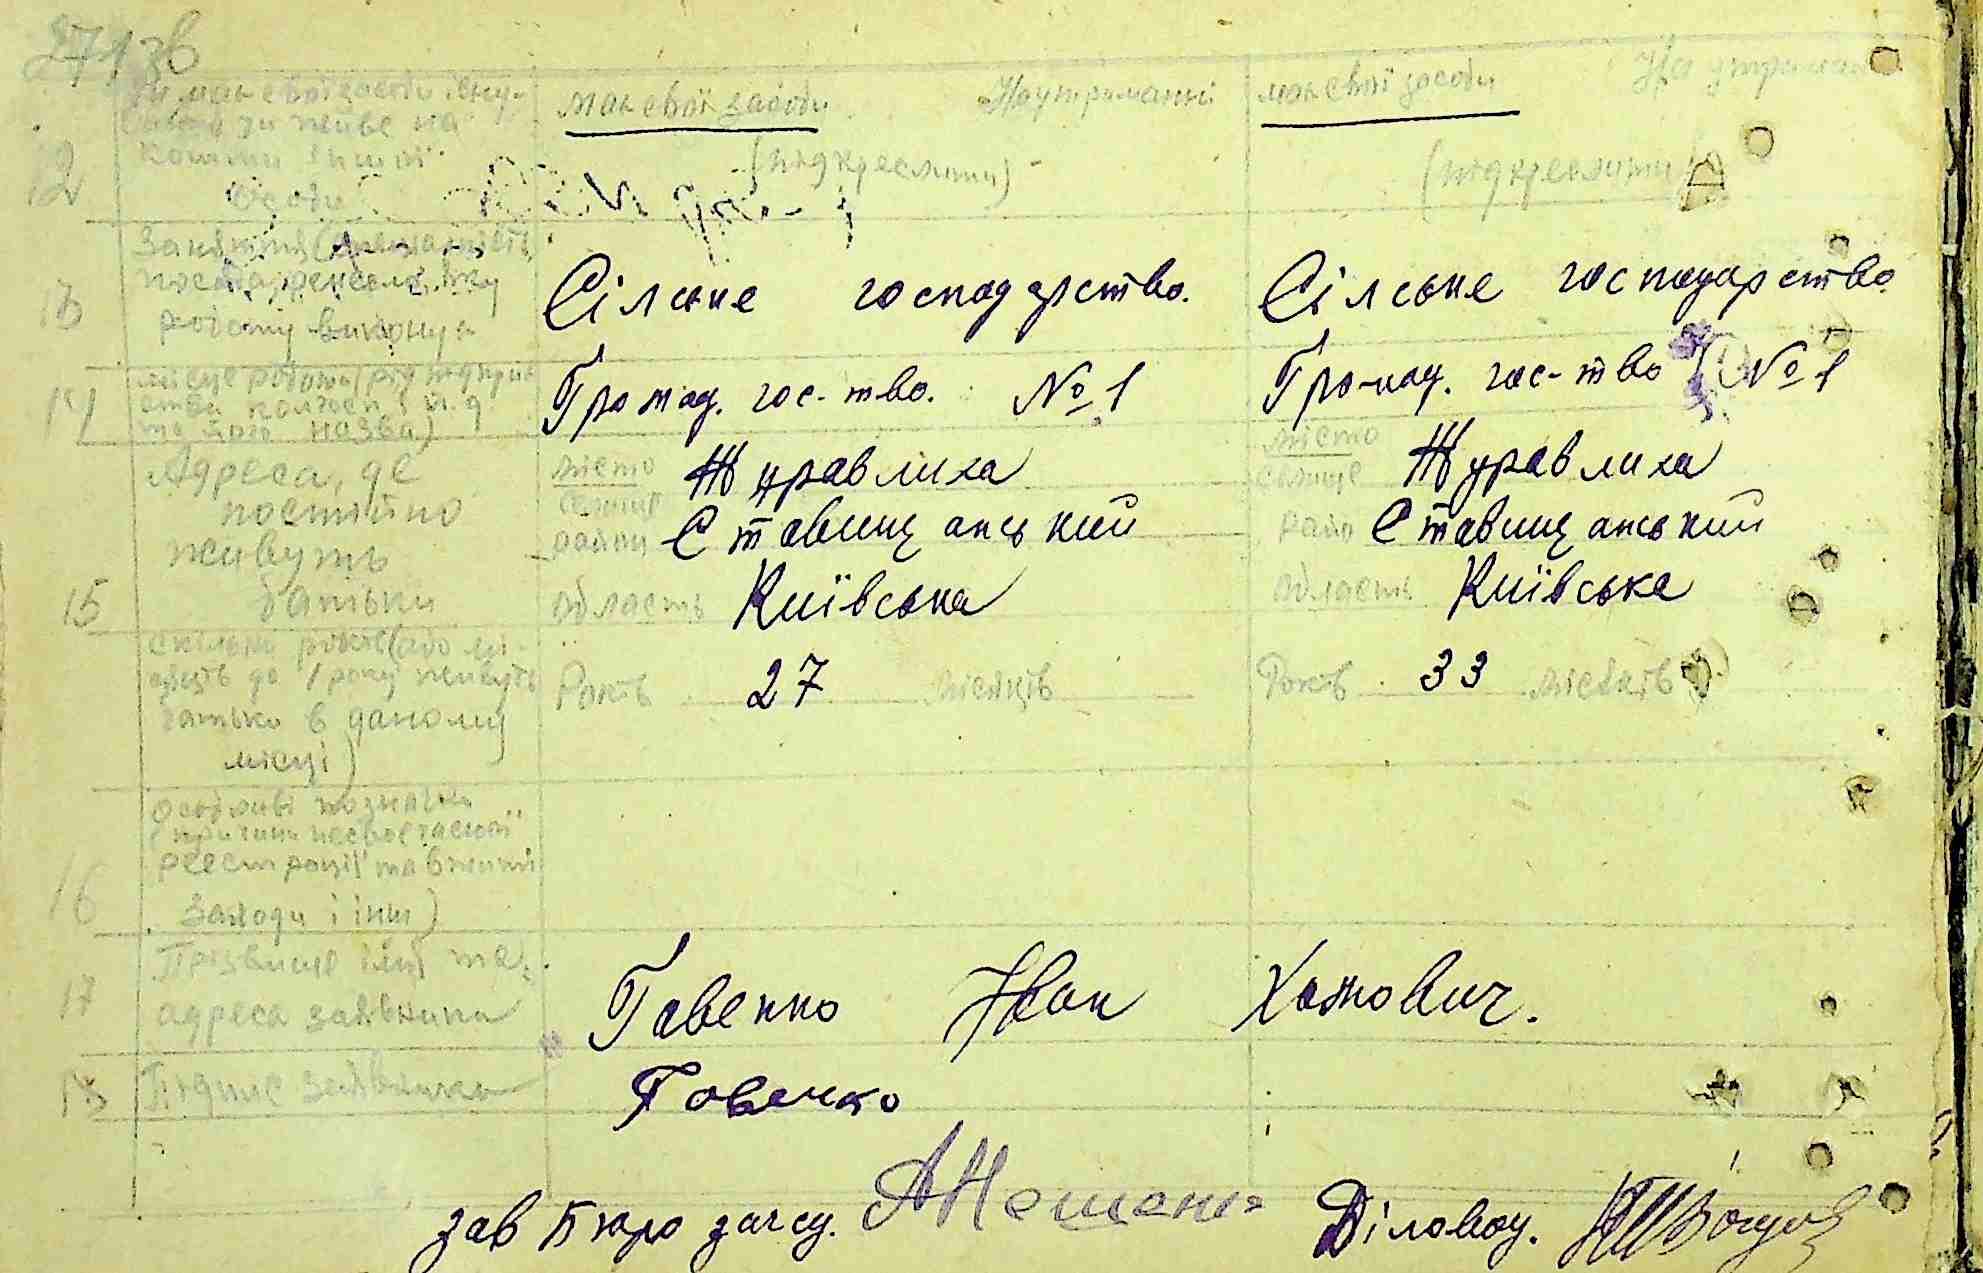 271 зв
12 Чи має свої засоби існування чи живе на кошти іншої особи
має свої засоби На утриманні (підкреслити)
має свої засоби На утриман (підкреслити)
13 Заняття (спеціальність посада, ремесло, яку роботу виконує
Сілське господарство.
Сілське господарство
14 місце роботи (рід підприємства колгосп і т. д. та його назва)
Громад. гос-тво. № 1
Громад. гос-тво № 1
15 Адреса, де постійно живуть батьки
місто селище Журавлиха
район Ставищанський
область Київська
місто селище Журавлиха
район Ставищанський
область Київська
скільки років (або місяців до 1 року живуть батьки в даному місці)
Років 27 місяців
Років 33 місяців
16 Особливі познаки (причини несвоєчасної реєстрації та вжиті заходи і інш)
17 Прізвище ім'я та адреса заявника
Гавенко Іван Хомович.
18 Підпис заявника
Говенко
зав Бюро загсу.
Діловод.